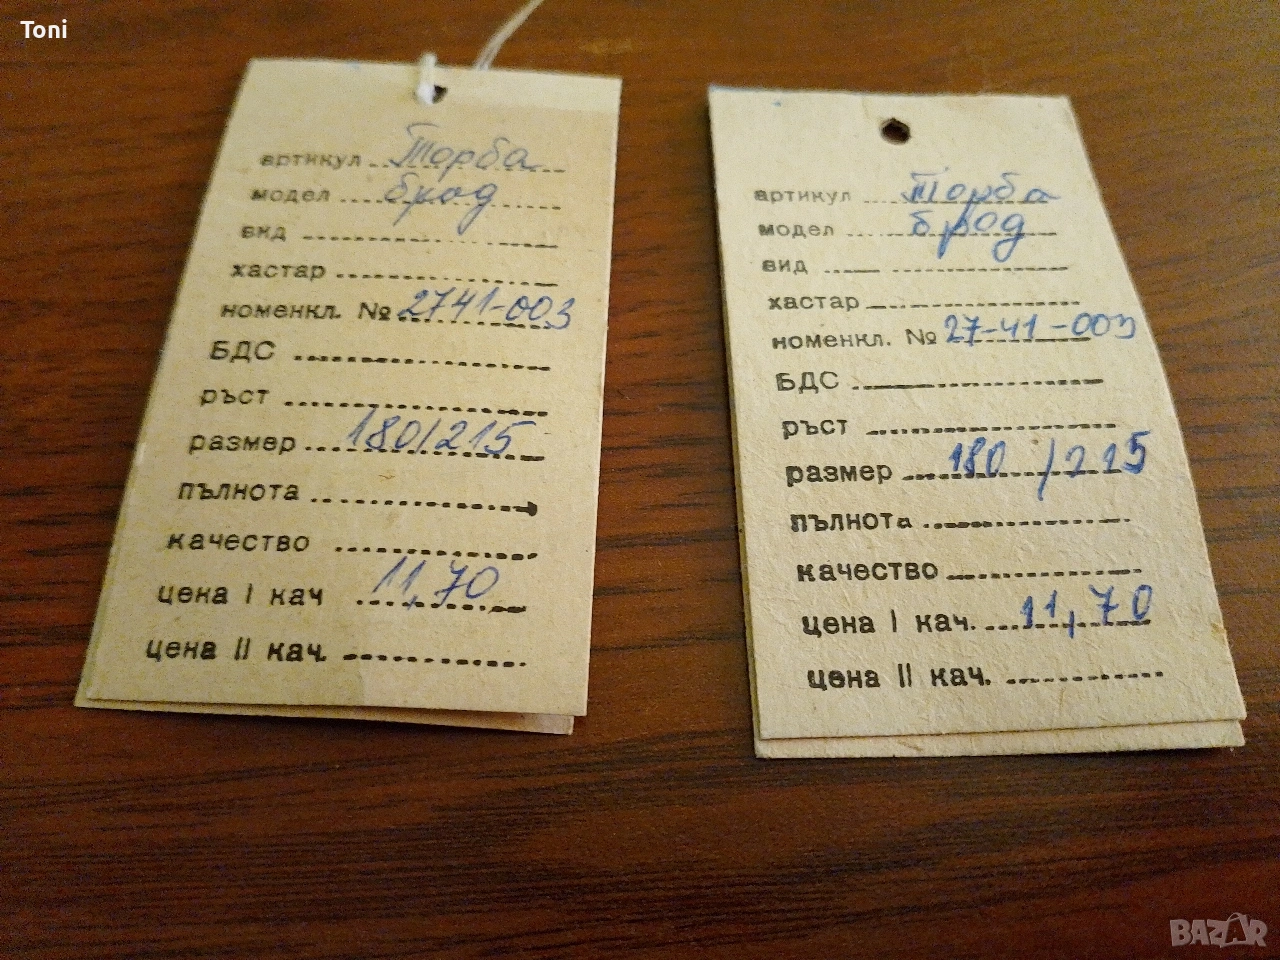 Toni
артикул Торба
модел брод
вид
хастар
номенкл. № 2741-003
БДС
ръст
размер 180/215
пълнота
качество
цена I кач 11,70
цена II кач.
артикул Торба
модел брод
вид
хастар
номенкл. № 27-41-003
БДС
ръст
размер 180/215
пълнота
качество
цена I кач. 11,70
цена II кач.
BAZAR